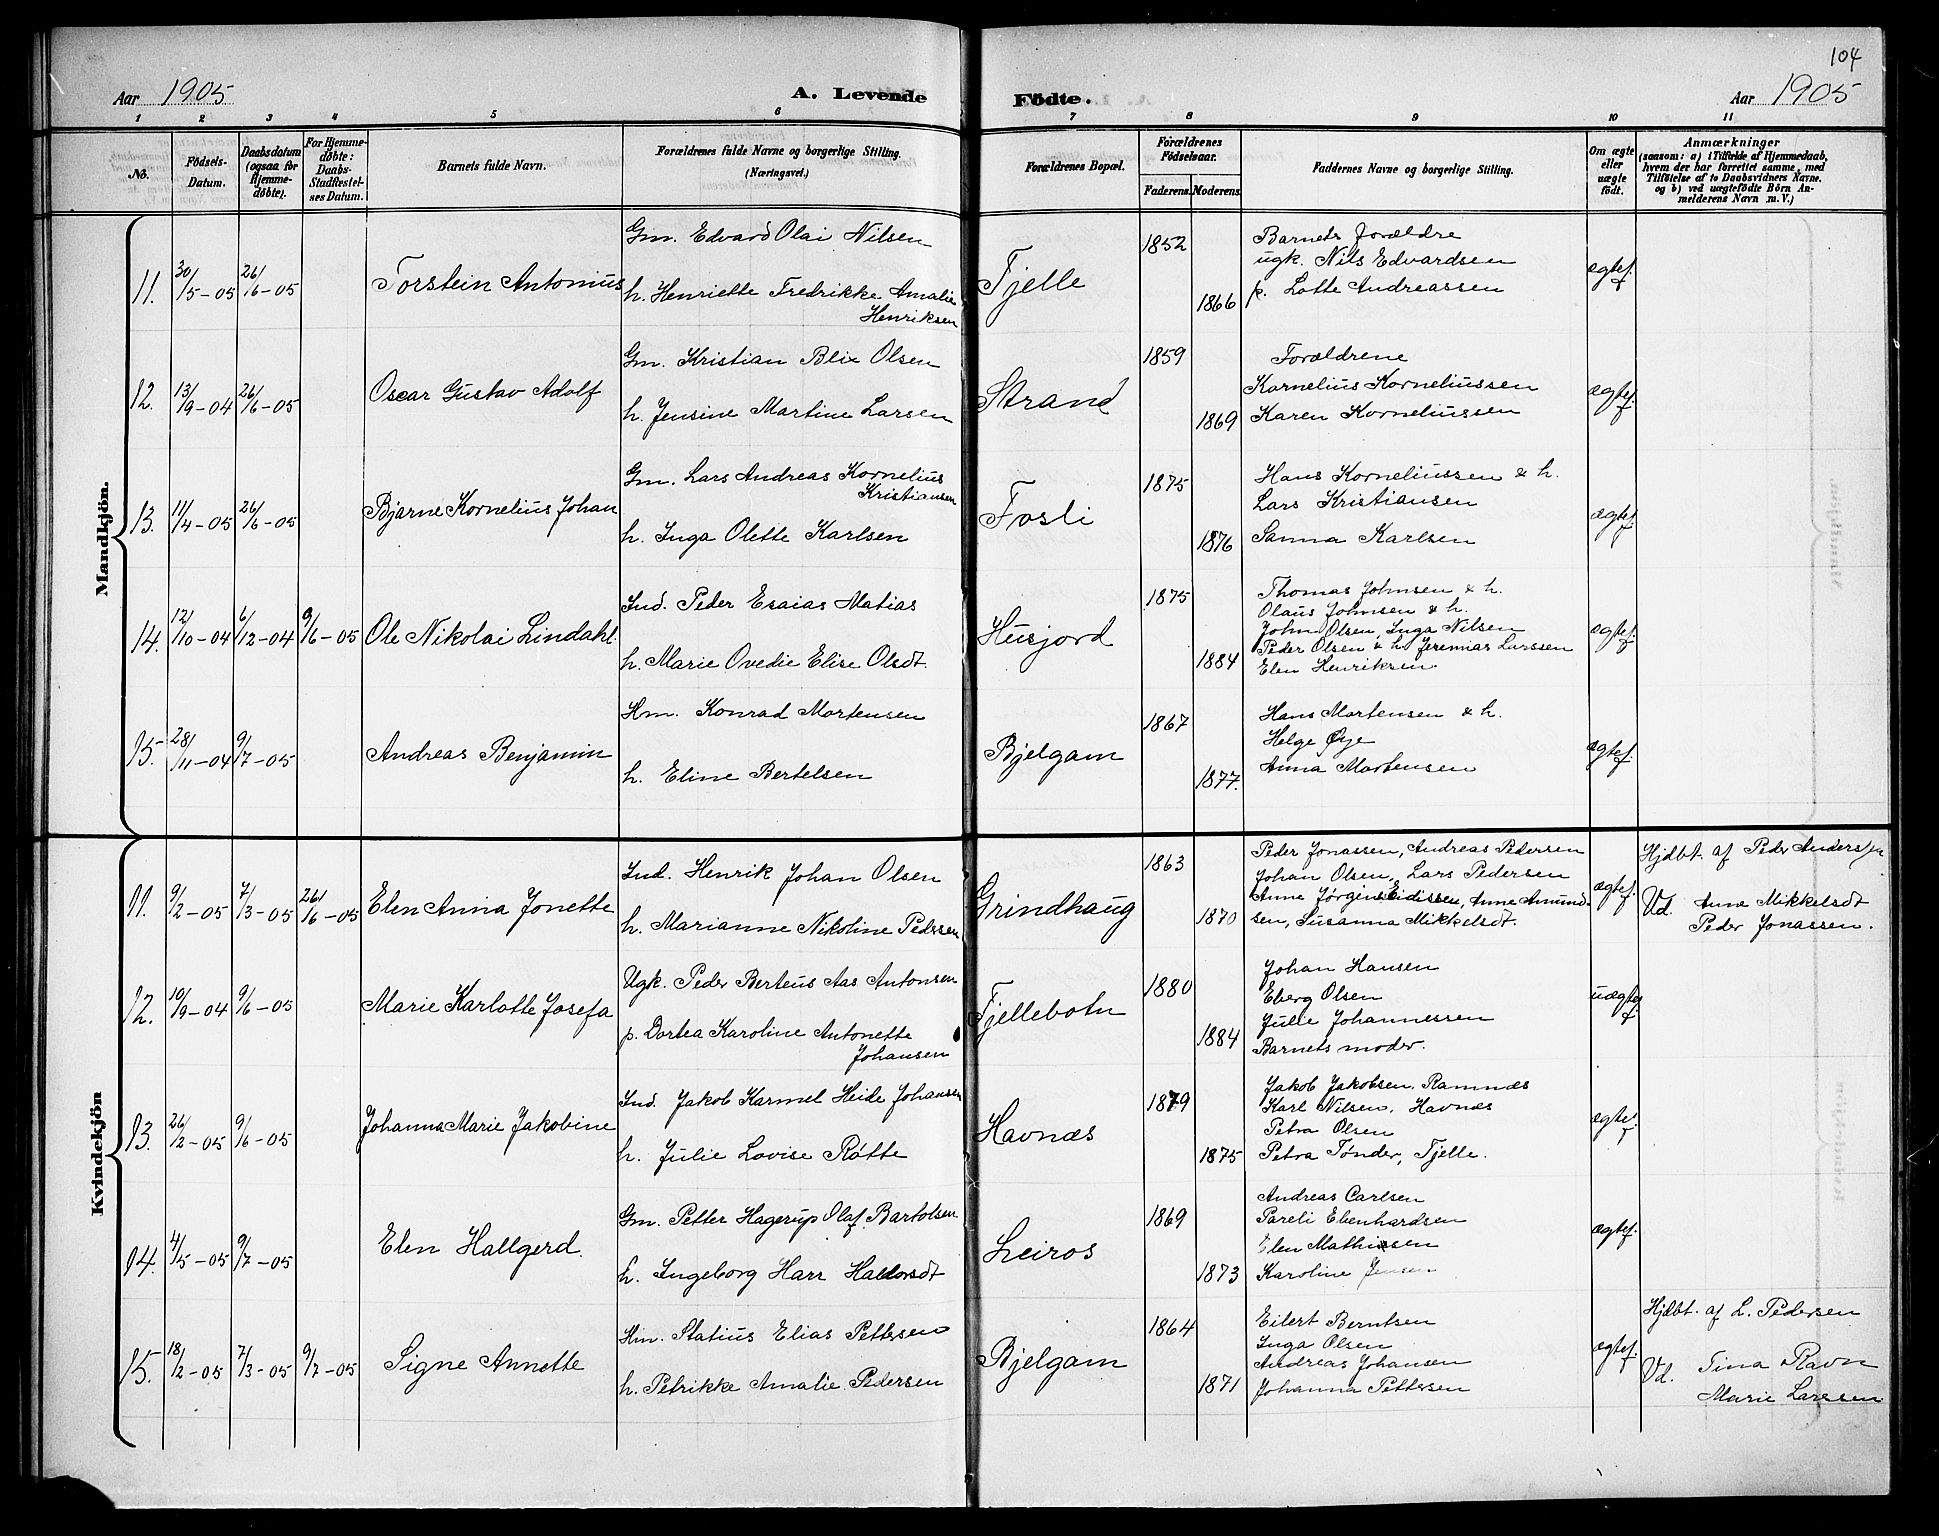 104
Aar 1905
A. Levende
Födte.
Aar 1905
1 2 3 4 5 6 7 8 9 10 11
No.
Födsels-
Datum.
Daabsdatum
(ogsaa for
Hjemme-
döbte).
For Hjemme-
döbte:
Daabs-
Stadfæstel-
ses Datum.
Barnets fulde Navn.
Forældrenes fulde Navne og borgerlige Stilling.
(Næringsvei.)
Forældrenes Bopæl.
Forældrenes
Födselsaar.
Faderens. Moderens.
Faddernes Navne og borgerlige Stilling.
Om ægte
eller
uægte
födt.
Anmærkninger
(saasom: a) i Tilfælde af Hjemmedaab,
hvem der har forrettet samme, med
Tilföielse af to Daabsvidners Navne.
og b) ved uægtefödte Börn An-
melderens Navn m. V.)
Mandkjön.
11. 30/5-05 26/6-05
Torstein Antonius
Gm. Edvard Olai Nilsen
h. Henriette Fredrikke Amalie
Henriksen
Fjelle
1852
1866
Barnets forældre
ugk. Nils Edvardsen
p. Lotte Andreassen
ægtef.
12. 13/9-04 26/6-05
Oscar Gustav Adolf
Gm. Kristian Blix Olsen
h. Jensine Martine Larsen
Strand
1859
1869
Forældrene
Kornelius Korneliussen
Karen Korneliussen
ægtef.
13. 11/4-05 26/6-05
Bjarne Kornelius Johan
Gm. Lars Andreas Kornelius
Kristiansen
h. Inga Olette Karlsen
Fosli
1875
1876
Hans Korneliussen & h.
Lars Kristiansen
Sanna Karlsen
ægtef.
14. 12/10-04 6/12-04 9/6-05
Ole Nikolai Lindahl.
Ind. Peder Esaias Matias
h. Marie Ovedie Elise Olsdt.
Husjord
1875
1884
Thomas Johnsen & h.
Olaus Johnsen & h.
John Olsen, Inga Nilsen
Peder Olsen & h. Jeremias Larssen
Elen Henriksen.
ægtef.
15. 28/11-04 9/7-05
Andreas Benjamin
Hm. Konrad Mortensen
h. Eline Bertelsen
Bjelgam
1867
1877.
Hans Mortensen & h.
Helge Øye
Anna Mortensen
ægtef.
Kvindekjön
11. 9/2-05 7/3-05 26/6-05
Elen Anna Jonette
Ind. Henrik Johan Olsen
h. Marianne Nikoline Pedersen
Grindhaug
1863
1870
Peder Jonassen, Andreas Pedersen
Johan Olsen, Lars Pedersen
Anne Jørgine Eidissen, Anne Amund-
sen, Susanna Mikkelsdt.
ægtef.
Hjdbt. af Peder Andersen
Vd. Anne Mikkelsdt
Peder Jonassen.
12. 10/9-04 9/6-05
Marie Karlotte Josefa
Ugk. Peder Berteus Aas Antonsen
p. Dortea Karoline Antonette
Johansen
Fjellebotn
1880
1884
Johan Hansen
Eberg Olsen
Julie Johannessen
Barnets moder.
uægtef.
13. 26/2-05 9/6-05
Johanna Marie Jakobine
Ind. Jakob Karmel Heide Johansen
h. Julie Lovise Røtte
Havnæs
1879
1875
Jakob Jakobsen, Ramnæs
Karl Nilsen, Havnæs
Petra Olsen
Petra Tønder, Fjelle.
ægtef.
14. 4/5-05 9/7-05
Elen Hallgerd.
Gm. Petter Hagerup Olaf Bartolsen
h. Ingeborg Harr Haldorsdt
Leiros
1869
1873
Andreas Carlsen
Pareli Ebenhardsen
Elen Mathisen
Karoline Jensen
ægtef.
15. 18/2-05 7/3-05 9/7-05
Signe Annette
Hm. Statius Elias Pettersen
h. Petrikke Amalie Pedersen
Bjelgam
1864
1871
Eilert Berntsen
Inga Olsen
Andreas Johansen
Johanna Pettersen
ægtef.
Hjdbt. af L. Pedersen
Vd. Tina Ravn
Marie Larssen